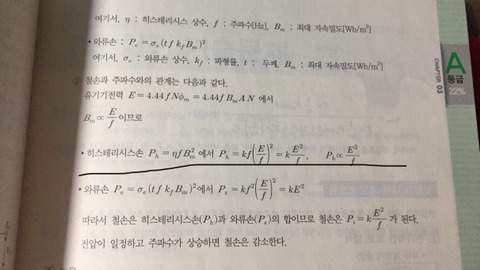 여기서, η : 히스테리시스 상수, f : 주파수[Hz], Bm : 최대 자속밀도[Wb/m²]
• 와류손 : Pe = σe(tf kf Bm)²
여기서, σe : 와류손 상수, kf : 파형률, t : 두께, Bm : 최대 자속밀도[Wb/m²]
철손과 주파수와의 관계는 다음과 같다.
유기기전력 E = 4.44fNφm = 4.44fBmAN 에서
Bm ∝ E/f 이므로
• 히스테리시스손 Ph = ηfBm² 에서 Ph = kf(E/f)² = k E²/f, Ph ∝ E²/f
• 와류손 Pe = σe(tf kf Bm)² 에서 Pe = kf²(E/f)² = kE²
따라서 철손은 히스테리시스손(Ph)과 와류손(Pe)의 합이므로 철손은 Pi = k E²/f 가 된다.
전압이 일정하고 주파수가 상승하면 철손은 감소한다.
A
등급
22%
CHAPTER 03